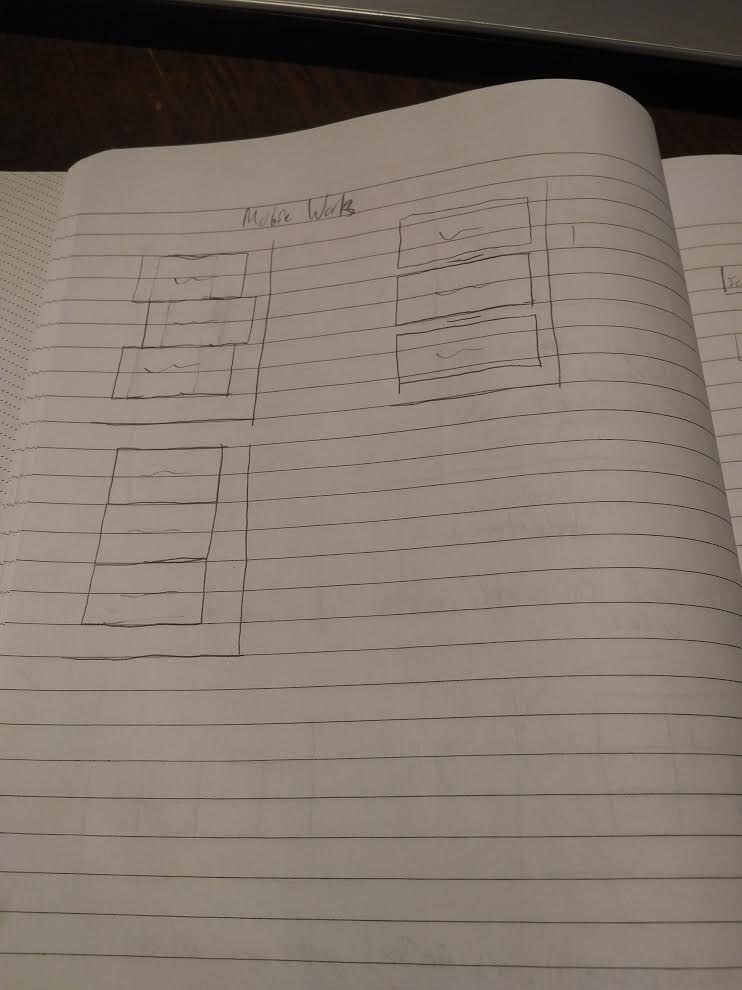 Mobile Works